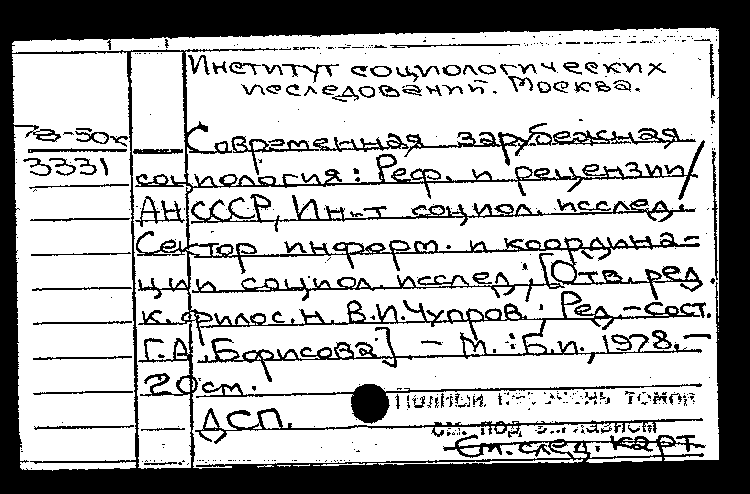 Институт социологических
исследований. Москва.
78-50к
3331
Современная зарубежная
социология: Реф. и рецензии/
АН СССР, Ин-т социол. исслед.
Сектор информ. и координа=
ции социол. исслед; [Отв. ред.
к. филос. н. В.И. Чупров.; Ред.-сост.
Г.А. Борисова]. – М.: Б.и., 1978.–
20 см.
ДСП.
Полный перечень томов
см. под заглавием
См. след. карт.